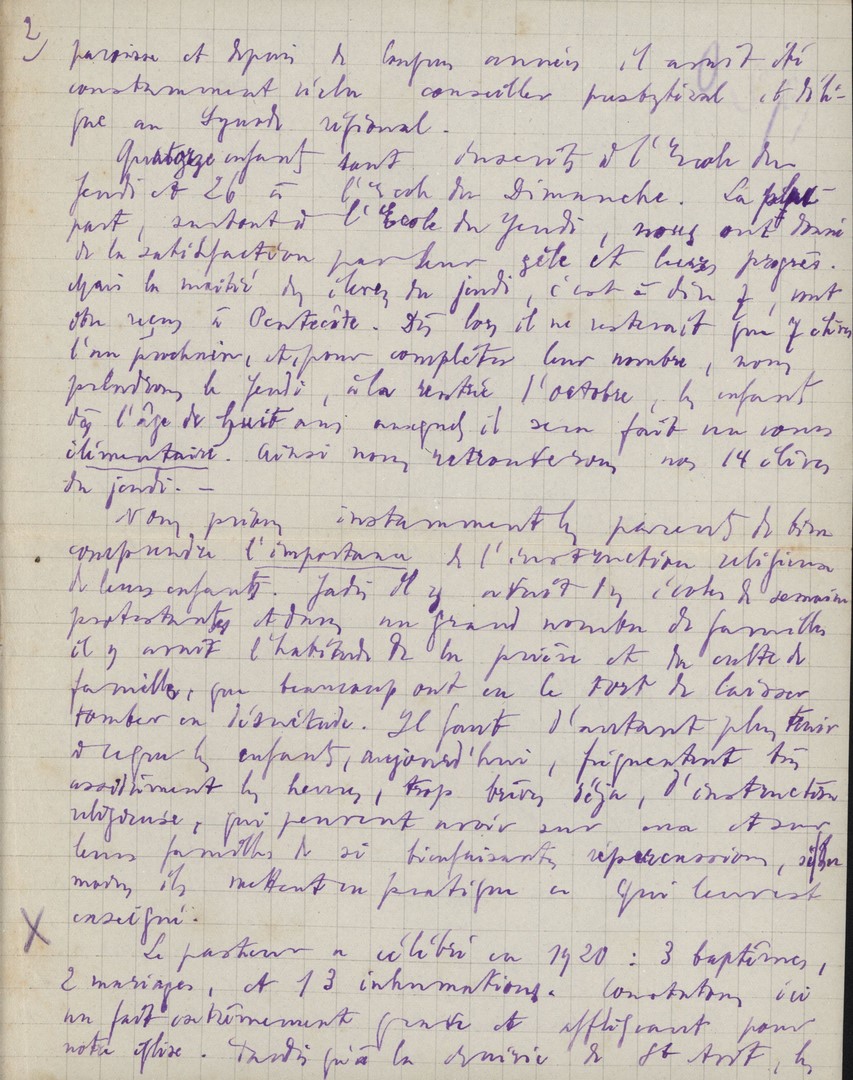 2)
paroisse et depuis de longues années il avait été
constamment réélu conseiller presbytéral et délé-
gué au Synode régional.
Quatorze enfants sont inscrits à l'Ecole du
Jeudi et 26 à l'Ecole du Dimanche. La plu-
part, surtout à l'Ecole du Jeudi, nous ont donné
de la satisfaction par leur zèle et leurs progrès.
Mais la moitié des élèves du jeudi, c'est à dire 7, vont
être reçus à Pentecôte. Dès lors il ne resterait que 7 élèves
l'an prochain, et, pour compléter leur nombre, nous
prendrons le Jeudi, à la rentrée d'octobre, les enfants
dès l'âge de huit ans auxquels il sera fait un cours
élémentaire. Ainsi nous retrouverons nos 14 élèves
du jeudi. –
Nous prions instamment les parents de bien
comprendre l'importance de l'instruction religieuse
de leurs enfants. Jadis il y avait des écoles de semaine
protestantes et dans un grand nombre de familles
il y avait l'habitude de la prière et du culte de
famille, que beaucoup ont eu le tort de laisser
tomber en désuétude. Il faut d'autant plus tenir
à ce que les enfants, aujourd'hui, fréquentent très
assidûment les heures, trop brèves déjà, d'instruction
religieuse, qui peuvent avoir sur eux et sur
leurs familles de si bienfaisantes répercussions, si
mais ils mettent en pratique ce qui leur est
enseigné.
X
Le pasteur a célébré en 1920 : 3 baptêmes,
2 mariages, et 13 inhumations. Constatons ici
un fait extrêmement grave et affligeant pour
notre église. Tandis qu'à la mairie de St Avit, les